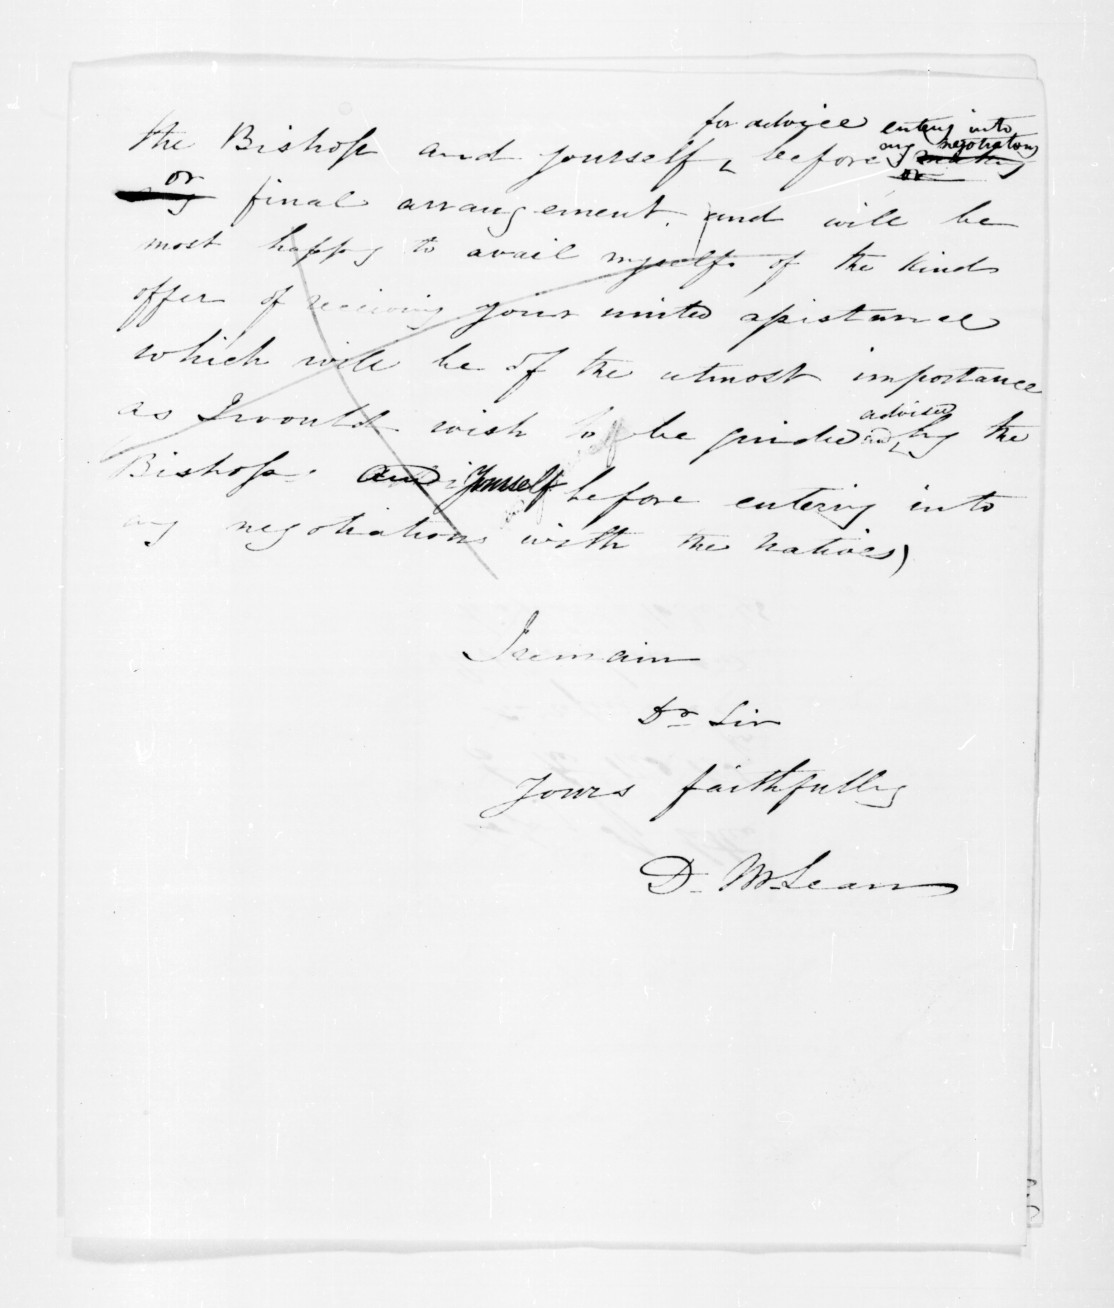 for advice entering into
the Bishop and yourself, before any negotiations
or final arrangement. and will be
most happy to avail myself of the kind
offer of receiving your united assistance
which will be of the utmost importance
as I would wish to be guided advised by the
Bishop. and yourself before entering into
any negotiations with the Natives)
I remain
Dr Sir
Yours faithfully
D. McLean